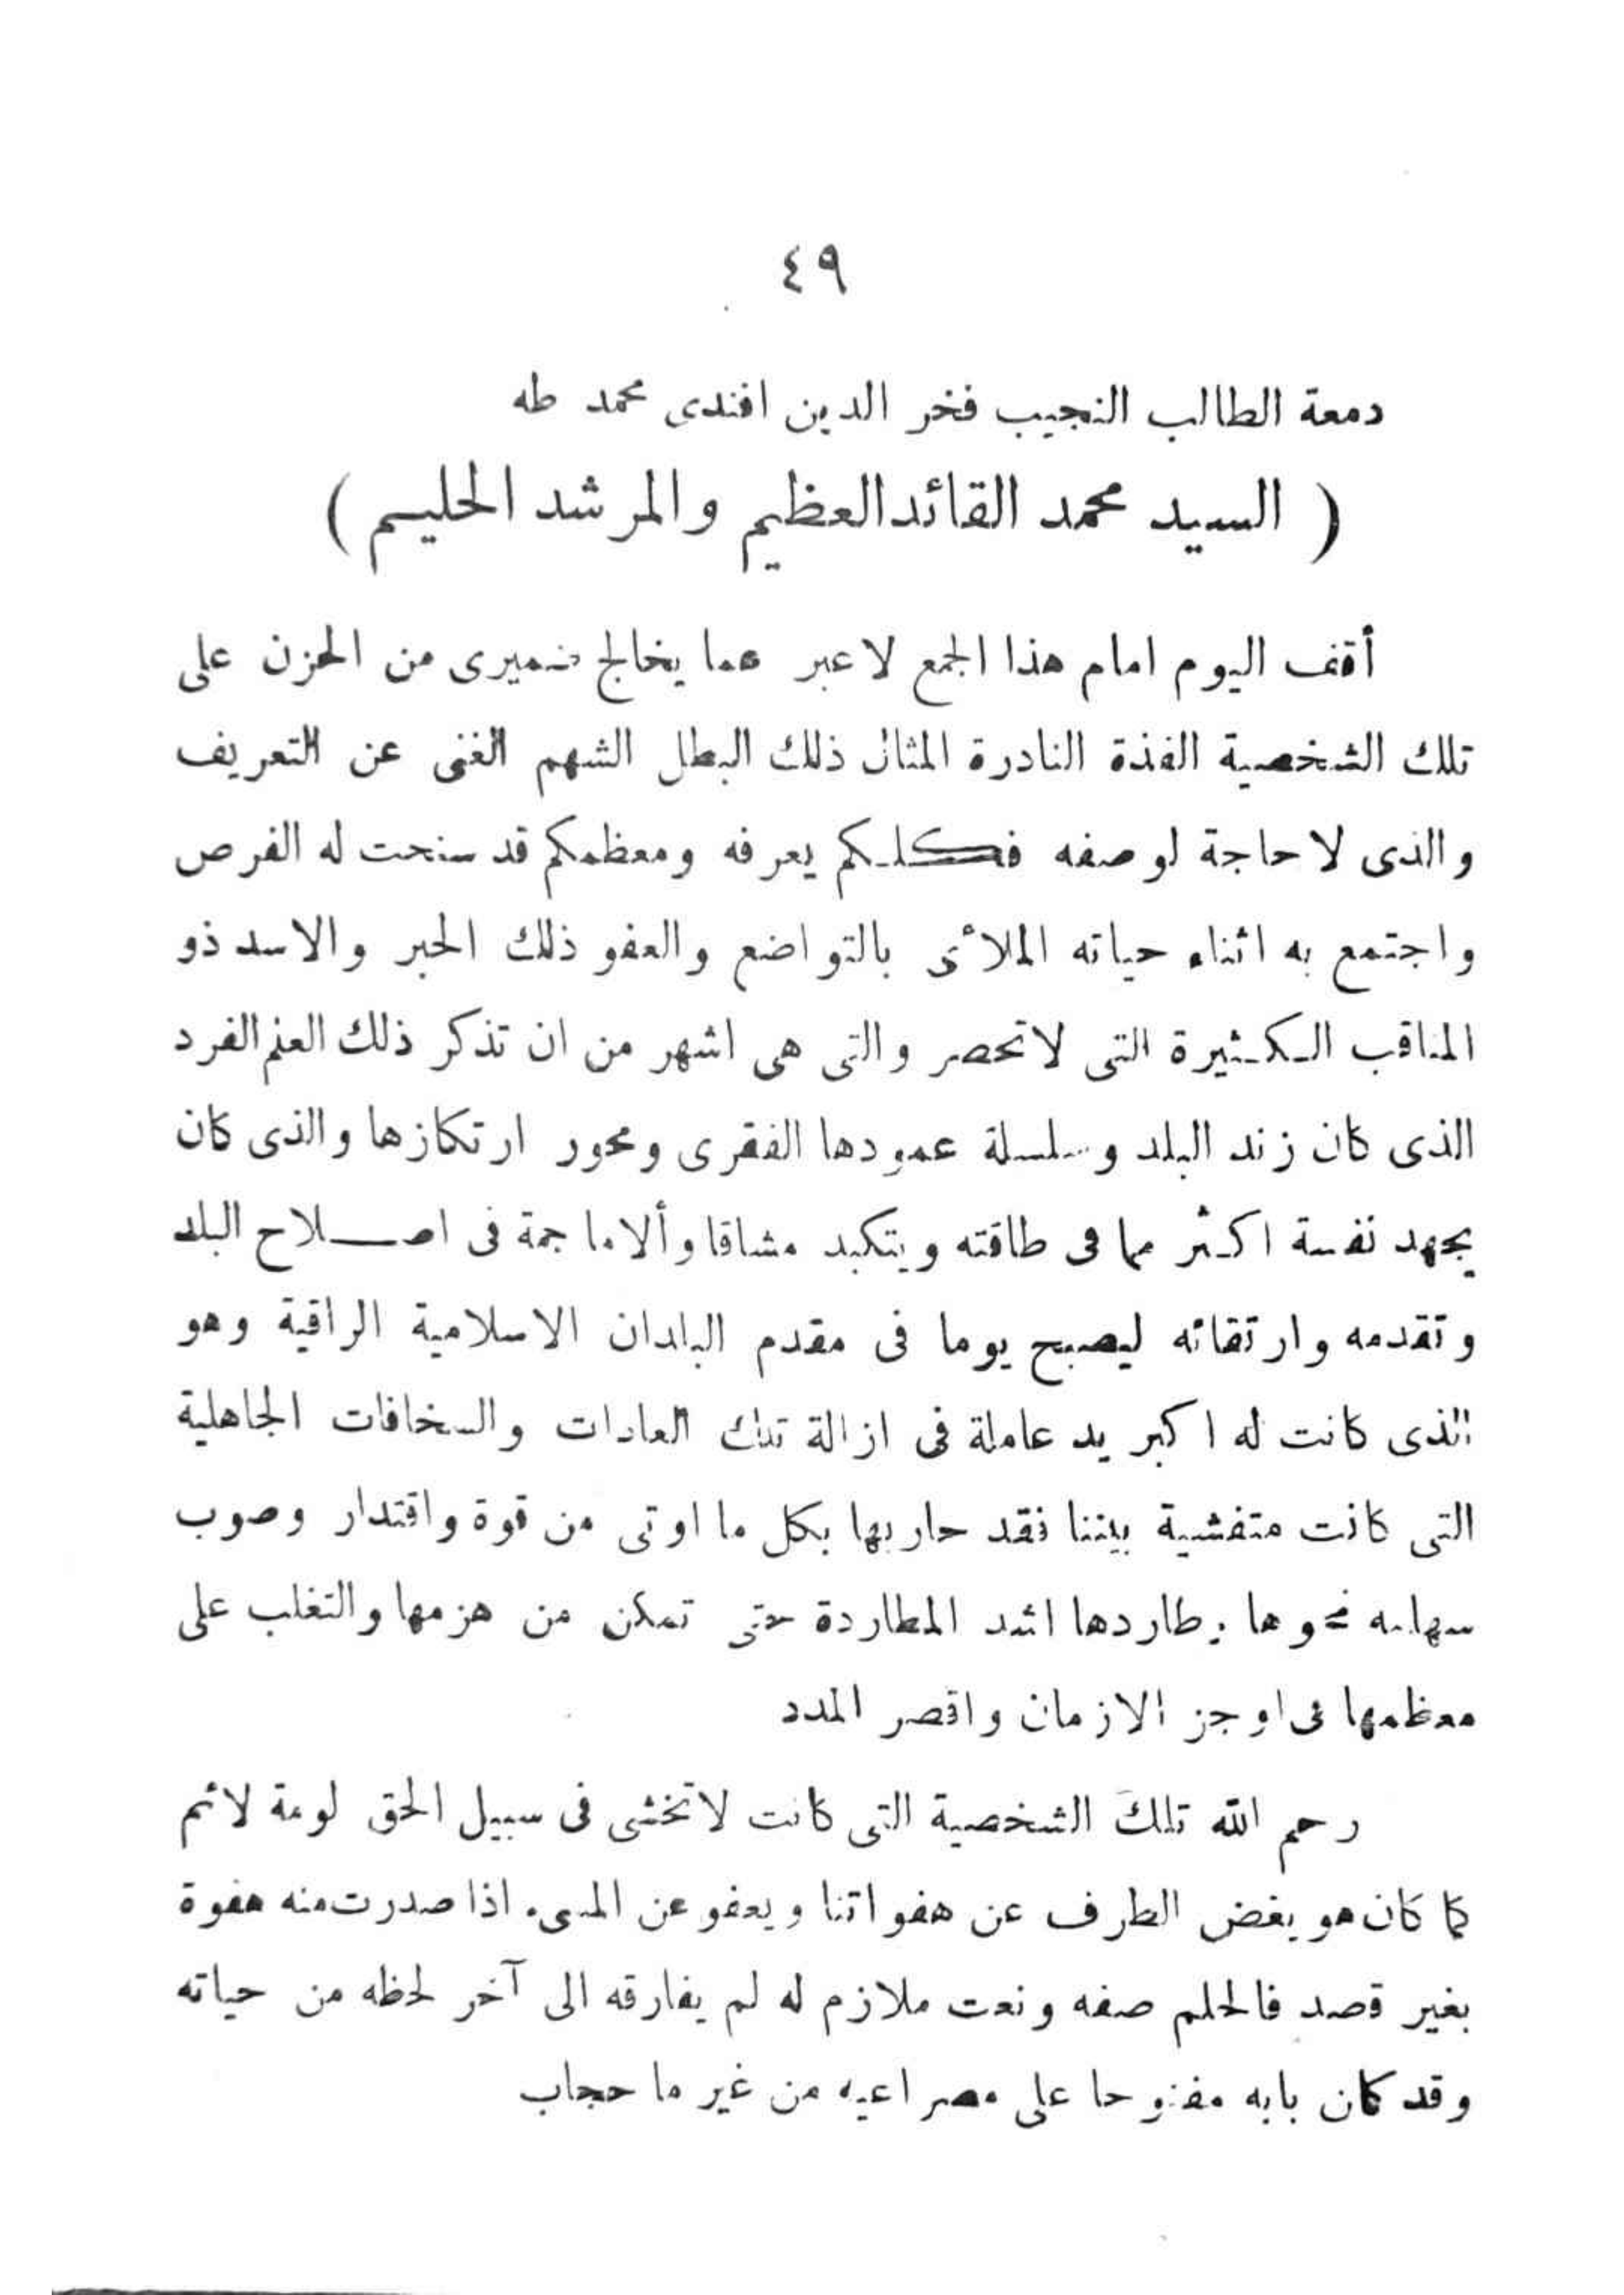 ٤٩
دمعة الطالب النجيب فخر الدين افندى محمد طه
( السيد محمد القائد العظيم والمرشد الحليم )
أقف اليوم امام هذا الجمع لاعبر عما يخالج ضميرى من الحزن على
تلك الشخصية الفذة النادرة المثال ذلك البطل الشهم الغنى عن التعريف
والذى لا حاجة لوصفه فكلكم يعرفه ومعظمكم قد سنحت له الفرص
واجتمع به اثناء حياته الملأى بالتواضع والعفو ذلك الحبر والاسد ذو
المناقب الكثيرة التى لاتحصر والتى هى اشهر من ان تذكر ذلك العلم الفرد
الذى كان زند البلد وسلسلة عمودها الفقرى ومحور ارتكازها والذى كان
يجهد نفسة اكثر مما فى طاقته ويتكبد مشاقا وألاما جمة فى اصلاح البلد
وتقدمه وارتقائه ليصبح يوما فى مقدم البلدان الاسلامية الراقية وهو
الذى كانت له اكبر يد عاملة فى ازالة تلك العادات والسخافات الجاهلية
التى كانت متفشية بيننا فقد حاربها بكل ما اوتى من قوة واقتدار وصوب
سهامه نحوها وطاردها اشد المطاردة حتى تمكن من هزمها والتغلب على
معظمها فى اوجز الازمان واقصر المدد
رحم الله تلك الشخصية التى كانت لاتخشى فى سبيل الحق لومة لائم
كما كان هو يغض الطرف عن هفواتنا ويعفو عن المسىء اذا صدرت منه هفوة
بغير قصد فالحلم صفه ونعت ملازم له لم يفارقه الى آخر لحظه من حياته
وقد كان بابه مفتوحا على مصراعيه من غير ما حجاب